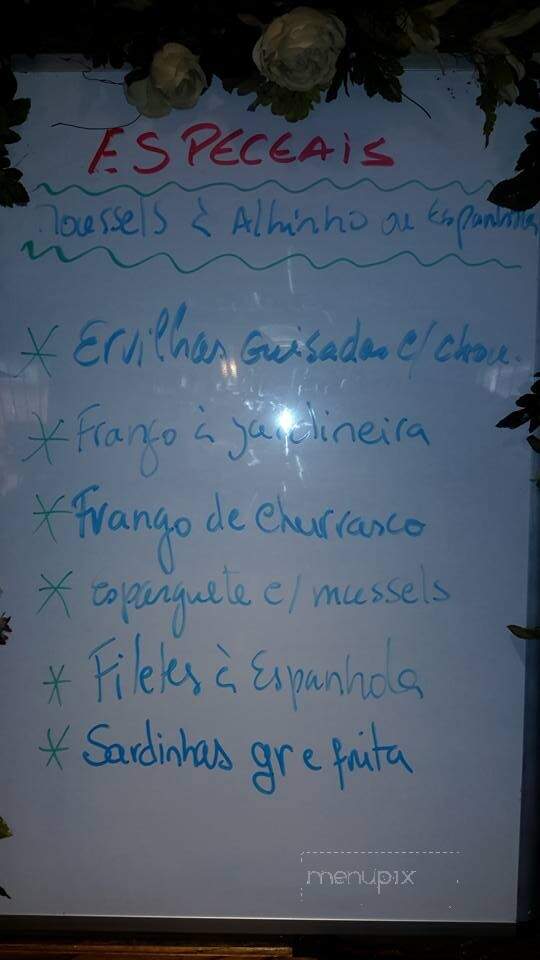 ESPECEAIS
Moussels à Alhinho ou Espanhola
* Ervilhas Guisadas c/ chou.
* Frango à jardineira
* Frango de churrasco
* esparguete c/ mussels
* Filetes à Espanhola
* Sardinhas gr e frita
menupix